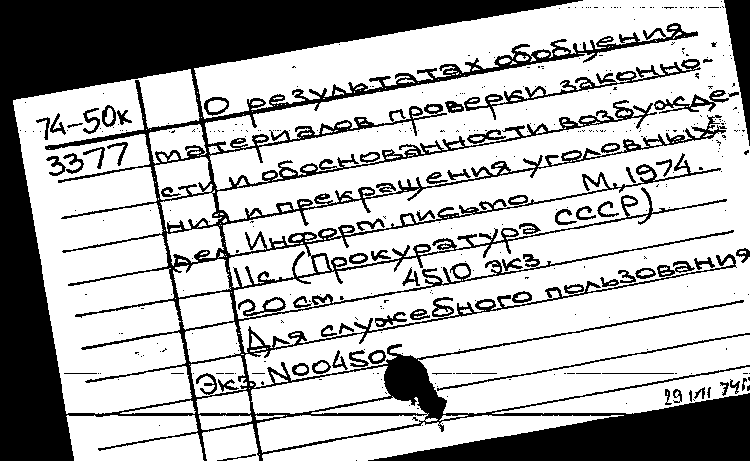 74-50к
3377
О результатах обобщения
материалов проверки законно-
сти и обоснованности возбужде-
ния и прекращения уголовных
дел. Информ. письмо. М., 1974.
11с. (Прокуратура СССР).
20 см. 4510 экз.
Для служебного пользования
Экз. N004505
29 VII 74